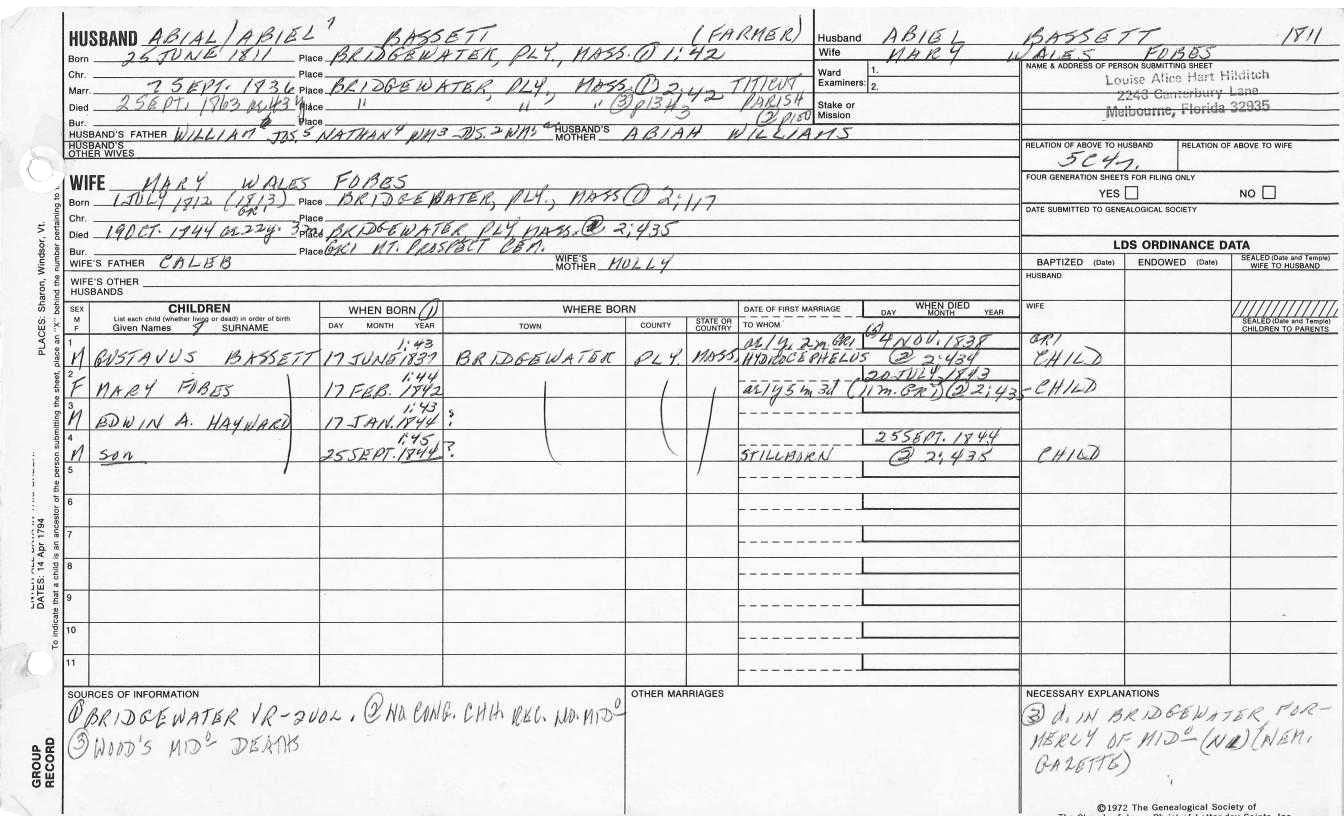 HUSBAND ABIAL/ABIEL 7 BASSETT (FARMER)
Born 25 JUNE 1811 Place BRIDGEWATER, PLY., MASS. ① 1:42
Chr. Place
Marr. 7 SEPT. 1836 Place BRIDGEWATER, PLY., MASS. ① 2;42 TITICUT
Died 2 SEPT. 1863 Place " " " ③ p134 PARISH
Bur. Place
HUSBAND'S FATHER WILLIAM 6 JOS. 5 NATHAN 4 WM 3 JOS. 2 WM HUSBAND'S MOTHER ABIAH WILLIAMS
HUSBAND'S OTHER WIVES
Husband ABIEL BASSETT 1811
Wife MARY WALES FOBES
Ward Examiners: 1.
2.
Stake or Mission
NAME & ADDRESS OF PERSON SUBMITTING SHEET
Louise Alice Hart Hilditch
2243 Canterbury Lane
Melbourne, Florida 32935
RELATION OF ABOVE TO HUSBAND RELATION OF ABOVE TO WIFE
5C4r.
FOUR GENERATION SHEETS FOR FILING ONLY
YES NO
DATE SUBMITTED TO GENEALOGICAL SOCIETY
WIFE MARY WALES FOBES
Born 1 JULY 1812 (1813) GR1 Place BRIDGEWATER, PLY., MASS ① 2;117
Chr. Place
Died 19 OCT. 1844 a. 32y. Place BRIDGEWATER PLY MASS. ② 2;435
Bur. Place GR1 MT. PROSPECT CEM.
WIFE'S FATHER CALEB WIFE'S MOTHER MOLLY
WIFE'S OTHER HUSBANDS
LDS ORDINANCE DATA
BAPTIZED (Date) ENDOWED (Date) SEALED (Date and Temple) WIFE TO HUSBAND
HUSBAND
WIFE
SEALED (Date and Temple) CHILDREN TO PARENTS
SEX M F CHILDREN List each child (whether living or dead) in order of birth Given Names 8 SURNAME WHEN BORN ① DAY MONTH YEAR WHERE BORN TOWN COUNTY STATE OR COUNTRY DATE OF FIRST MARRIAGE TO WHOM WHEN DIED DAY MONTH YEAR
1 1:43 a. 1y. 2m. GR1 4 NOV. 1838 GR1
M GUSTAVUS BASSETT 17 JUNE 1837 BRIDGEWATER PLY. MASS. HYDROCEPHELUS ② 2:434 CHILD
2 1:44 20 JULY 1843
F MARY FOBES 17 FEB. 1842 a. 1y 5m 3d (11m. GR1) ② 2;435 CHILD
3 1:43
M EDWIN A. HAYWARD 17 JAN. 1844 ?
4 1:45 25 SEPT. 1844
M son 25 SEPT. 1844 ? STILLBORN ② 2;435 CHILD
5
6
7
8
9
10
11
SOURCES OF INFORMATION
① BRIDGEWATER VR-2VOL. ② NO. CONG. CHH. REC. NO. MIDº
③ WOOD'S MIDº DEATHS
OTHER MARRIAGES
NECESSARY EXPLANATIONS
③ d. IN BRIDGEWATER, FOR-
MERLY OF MIDº (NEM.
GAZETTE)
©1972 The Genealogical Society of
PLACES: Sharon, Windsor, Vt.
DATES: 14 Apr 1794
To indicate that a child is an ancestor of the person submitting the sheet, place an "X" behind the number pertaining to
GROUP RECORD